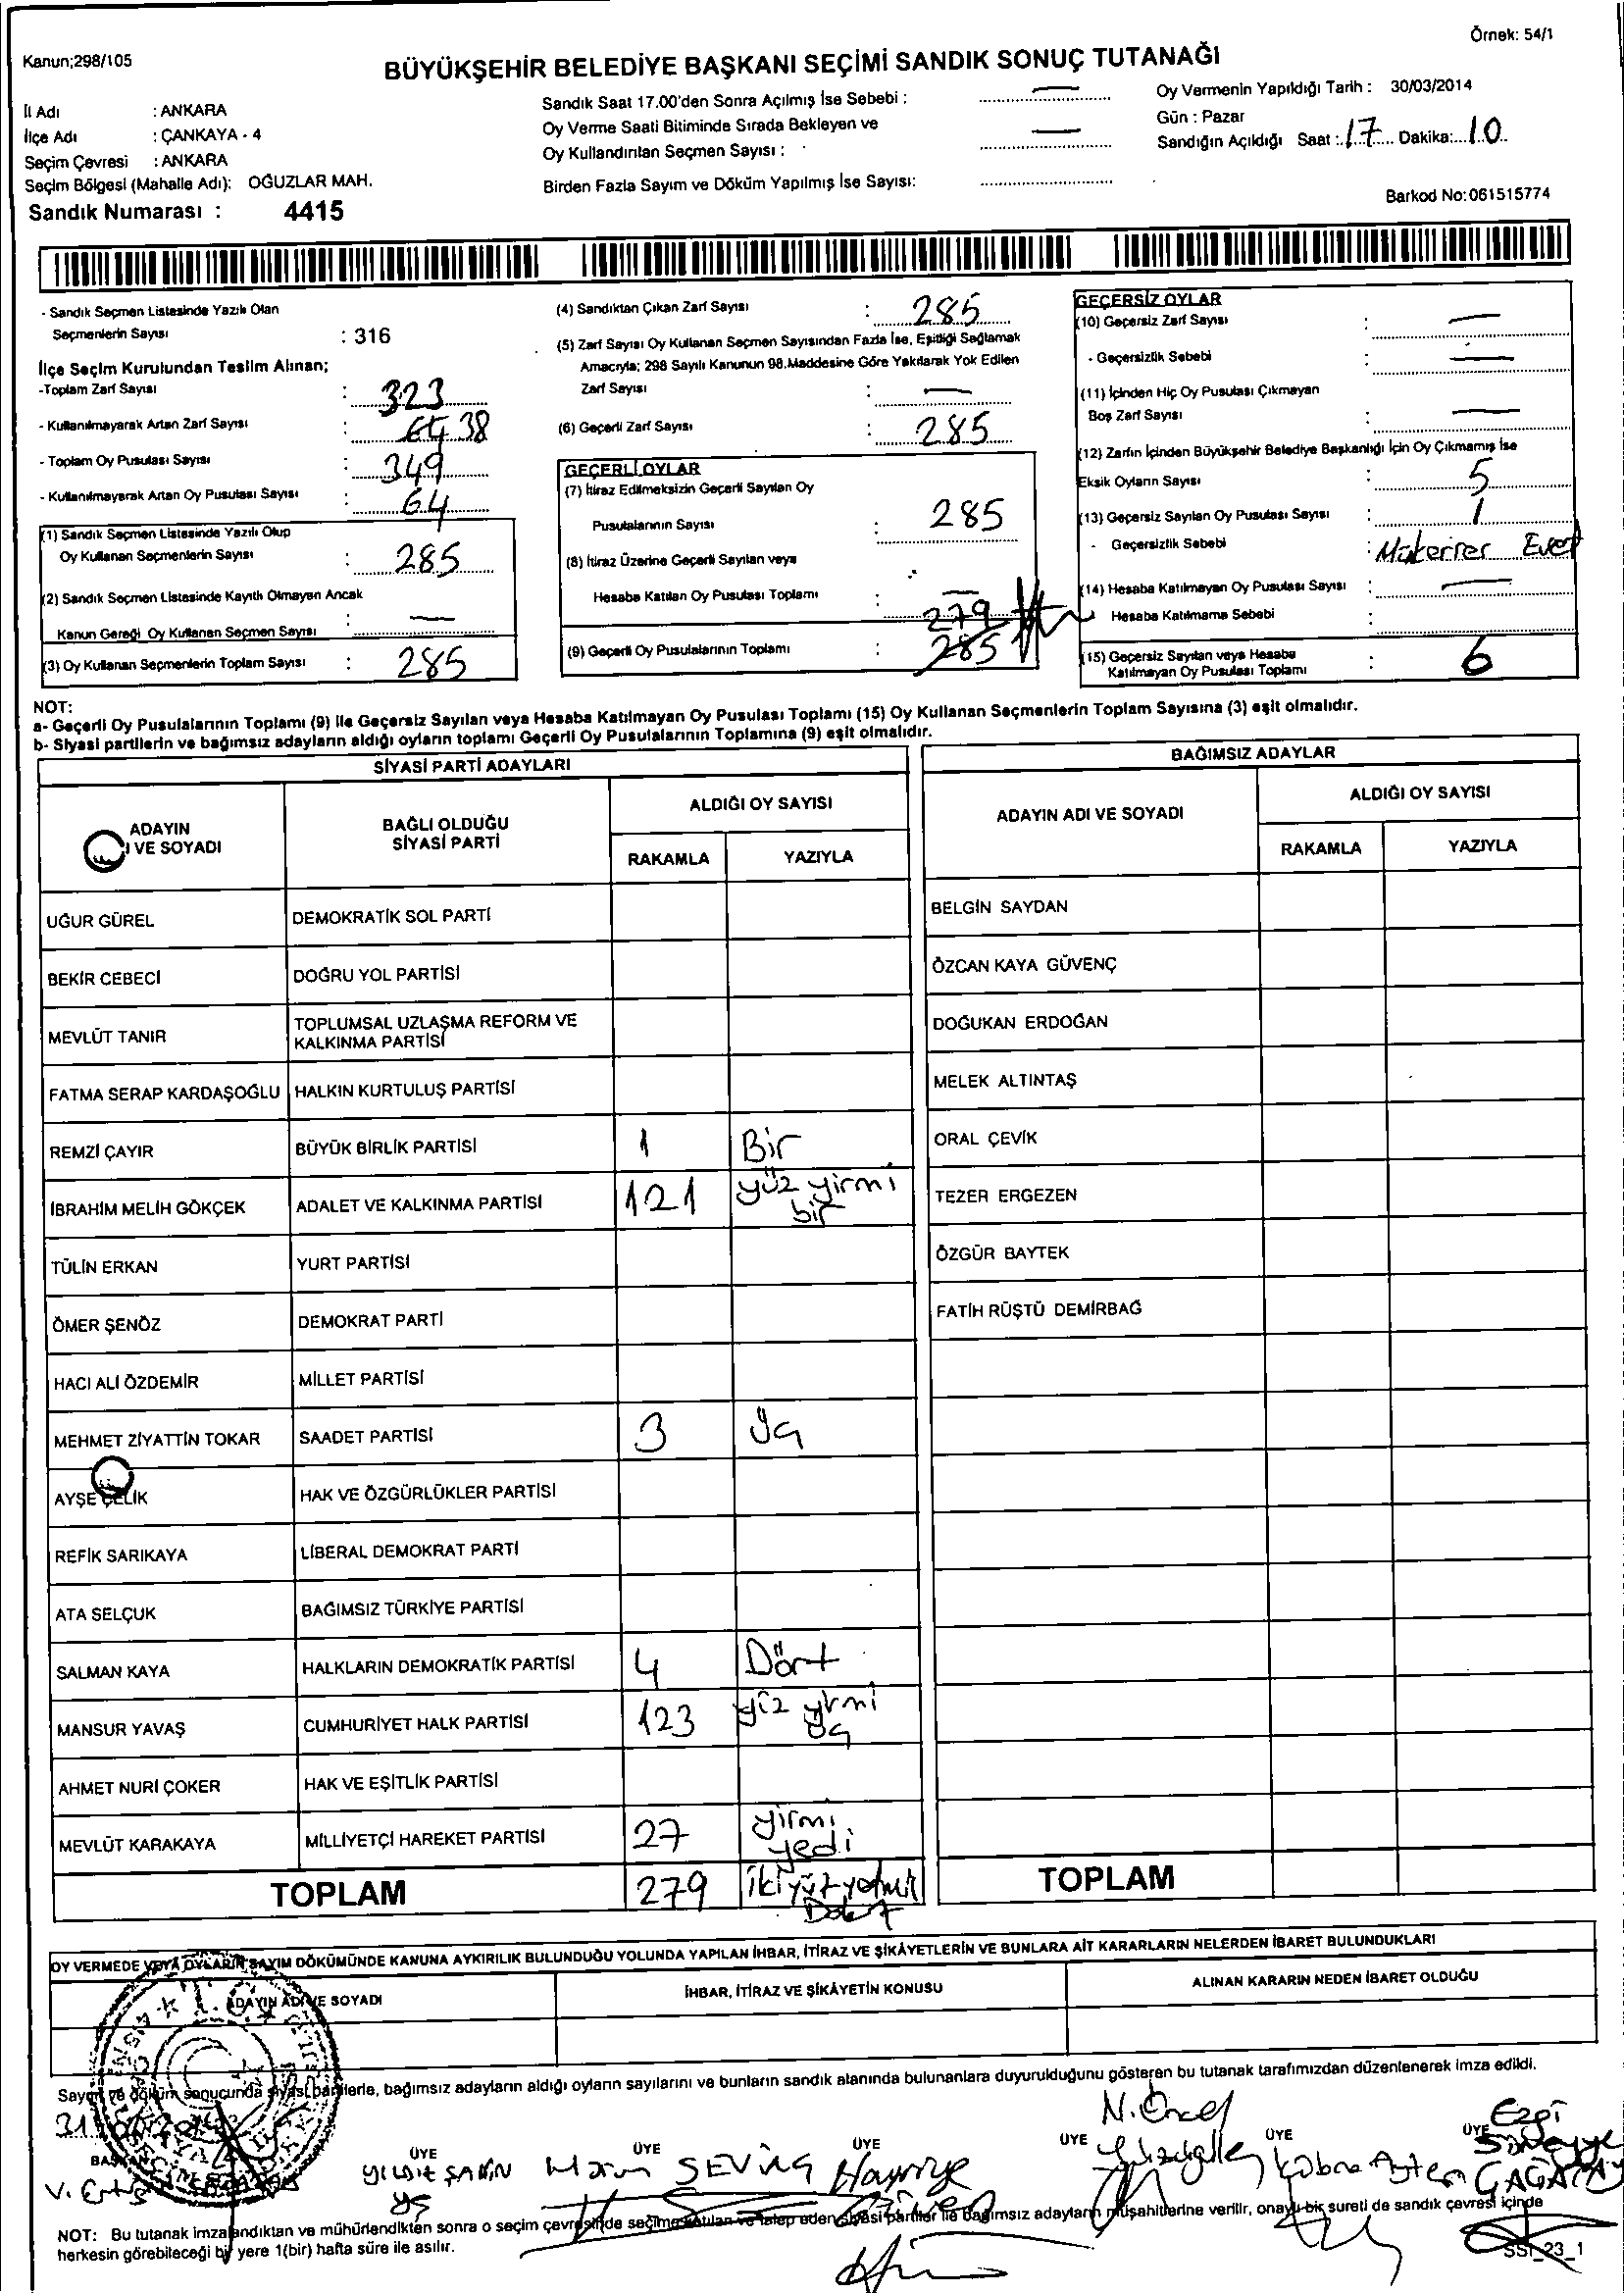 Örnek: 54/1
Kanun;298/105
BÜYÜKŞEHİR BELEDİYE BAŞKANI SEÇİMİ SANDIK SONUÇ TUTANAĞI
İl Adı : ANKARA
İlçe Adı : ÇANKAYA - 4
Seçim Çevresi : ANKARA
Seçim Bölgesi (Mahalle Adı): OĞUZLAR MAH.
Sandık Numarası : 4415
Sandık Saat 17.00'den Sonra Açılmış İse Sebebi : —
Oy Verme Saati Bitiminde Sırada Bekleyen ve
Oy Kullandırılan Seçmen Sayısı : —
Birden Fazla Sayım ve Döküm Yapılmış İse Sayısı:
Oy Vermenin Yapıldığı Tarih : 30/03/2014
Gün : Pazar
Sandığın Açıldığı Saat : 17 Dakika: 10
Barkod No: 061515774
- Sandık Seçmen Listesinde Yazılı Olan
Seçmenlerin Sayısı : 316
İlçe Seçim Kurulundan Teslim Alınan;
-Toplam Zarf Sayısı : 323
- Kullanılmayarak Artan Zarf Sayısı : 64 38
- Toplam Oy Pusulası Sayısı : 349
- Kullanılmayarak Artan Oy Pusulası Sayısı : 64
(1) Sandık Seçmen Listesinde Yazılı Olup
Oy Kullanan Seçmenlerin Sayısı : 285
(2) Sandık Seçmen Listesinde Kayıtlı Olmayan Ancak
Kanun Gereği Oy Kullanan Seçmen Sayısı : —
(3) Oy Kullanan Seçmenlerin Toplam Sayısı : 285
(4) Sandıktan Çıkan Zarf Sayısı : 285
(5) Zarf Sayısı Oy Kullanan Seçmen Sayısından Fazla İse, Eşitliği Sağlamak
Amacıyla; 298 Sayılı Kanunun 98.Maddesine Göre Yakılarak Yok Edilen
Zarf Sayısı : —
(6) Geçerli Zarf Sayısı : 285
GEÇERLİ OYLAR
(7) İtiraz Edilmeksizin Geçerli Sayılan Oy
Pusulalarının Sayısı : 285
(8) İtiraz Üzerine Geçerli Sayılan veya
Hesaba Katılan Oy Pusulası Toplamı : —
279
(9) Geçerli Oy Pusulalarının Toplamı : 285
GEÇERSİZ OYLAR
(10) Geçersiz Zarf Sayısı : —
- Geçersizlik Sebebi : —
(11) İçinden Hiç Oy Pusulası Çıkmayan
Boş Zarf Sayısı : —
(12) Zarfın İçinden Büyükşehir Belediye Başkanlığı İçin Oy Çıkmamış İse
Eksik Oyların Sayısı : 5
(13) Geçersiz Sayılan Oy Pusulası Sayısı : 1
- Geçersizlik Sebebi : Mükerrer Evet
(14) Hesaba Katılmayan Oy Pusulası Sayısı : —
Hesaba Katılmama Sebebi :
(15) Geçersiz Sayılan veya Hesaba
Katılmayan Oy Pusulası Toplamı : 6
NOT:
a- Geçerli Oy Pusulalarının Toplamı (9) ile Geçersiz Sayılan veya Hesaba Katılmayan Oy Pusulası Toplamı (15) Oy Kullanan Seçmenlerin Toplam Sayısına (3) eşit olmalıdır.
b- Siyasi partilerin ve bağımsız adayların aldığı oyların toplamı Geçerli Oy Pusulalarının Toplamına (9) eşit olmalıdır.
SİYASİ PARTİ ADAYLARI
ADAYIN
I VE SOYADI
BAĞLI OLDUĞU
SİYASİ PARTİ
ALDIĞI OY SAYISI
RAKAMLA YAZIYLA
UĞUR GÜREL DEMOKRATİK SOL PARTİ
BEKİR CEBECİ DOĞRU YOL PARTİSİ
MEVLÜT TANIR TOPLUMSAL UZLAŞMA REFORM VE
KALKINMA PARTİSİ
FATMA SERAP KARDAŞOĞLU HALKIN KURTULUŞ PARTİSİ
REMZİ ÇAYIR BÜYÜK BİRLİK PARTİSİ 1 Bir
İBRAHİM MELİH GÖKÇEK ADALET VE KALKINMA PARTİSİ 121 yüz yirmi
bir
TÜLİN ERKAN YURT PARTİSİ
ÖMER ŞENÖZ DEMOKRAT PARTİ
HACI ALİ ÖZDEMİR MİLLET PARTİSİ
MEHMET ZİYATTİN TOKAR SAADET PARTİSİ 3 üç
AYŞE ÇELİK HAK VE ÖZGÜRLÜKLER PARTİSİ
REFİK SARIKAYA LİBERAL DEMOKRAT PARTİ
ATA SELÇUK BAĞIMSIZ TÜRKİYE PARTİSİ
SALMAN KAYA HALKLARIN DEMOKRATİK PARTİSİ 4 Dört
MANSUR YAVAŞ CUMHURİYET HALK PARTİSİ 123 yüz yirmi
üç
AHMET NURİ ÇOKER HAK VE EŞİTLİK PARTİSİ
MEVLÜT KARAKAYA MİLLİYETÇİ HAREKET PARTİSİ 27 yirmi
yedi
TOPLAM 279
BAĞIMSIZ ADAYLAR
ADAYIN ADI VE SOYADI
ALDIĞI OY SAYISI
RAKAMLA YAZIYLA
BELGİN SAYDAN
ÖZCAN KAYA GÜVENÇ
DOĞUKAN ERDOĞAN
MELEK ALTINTAŞ
ORAL ÇEVİK
TEZER ERGEZEN
ÖZGÜR BAYTEK
FATİH RÜŞTÜ DEMİRBAĞ
TOPLAM
OY VERMEDE VEYA OYLARIN SAYIM DÖKÜMÜNDE KANUNA AYKIRILIK BULUNDUĞU YOLUNDA YAPILAN İHBAR, İTİRAZ VE ŞİKÂYETLERİN VE BUNLARA AİT KARARLARIN NELERDEN İBARET BULUNDUKLARI
ADAYIN ADI VE SOYADI İHBAR, İTİRAZ VE ŞİKÂYETİN KONUSU ALINAN KARARIN NEDEN İBARET OLDUĞU
Sayım ve döküm sonucunda siyasi partilerle, bağımsız adayların aldığı oyların sayılarını ve bunların sandık alanında bulunanlara duyurulduğunu gösteren bu tutanak tarafımızdan düzenlenerek imza edildi.
BAŞKAN ÜYE ÜYE ÜYE ÜYE ÜYE ÜYE
YILDIZ ŞAHİN SEVİNÇ Hayriye Kübra Ezgi
NOT: Bu tutanak imzalandıktan ve mühürlendikten sonra o seçim çevresinde seçime katılan ve talep eden siyasi partiler ile bağımsız adayların müşahitlerine verilir, onaylı bir sureti de sandık çevresi içinde
herkesin görebileceği bir yere 1(bir) hafta süre ile asılır.
SSI_23_1